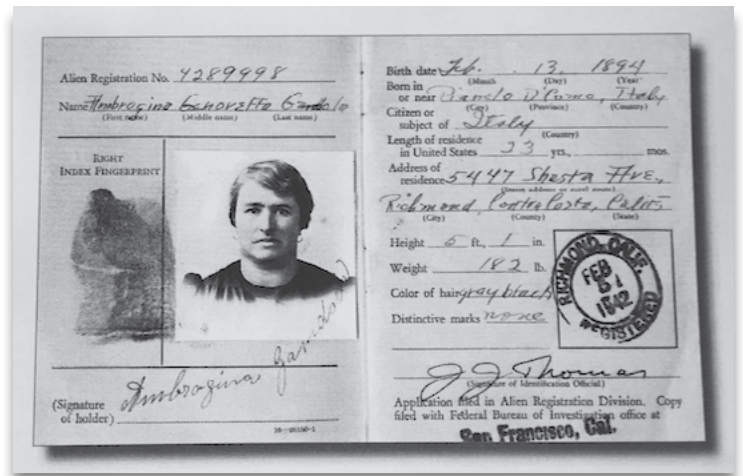 Alien Registration No. 4289998
Name Ambrogina Genovetta Gandola
(First name) (Middle name) (Last name)
RIGHT
INDEX FINGERPRINT
Ambrogina Gandola
(Signature
of holder)
16—20150-1
Birth date Feb. 13, 1894
(Month (Day) (Year)
Born in
or near Pianelo D'Como, Italy
(City) (Province) (Country)
Citizen or
subject of Italy
(Country)
Length of residence
in United States 33 yrs., mos.
Address of
residence 5447 Shasta Ave.,
(Street address or rural route)
Richmond, Contra Costa, Calif.
(City) (County) (State)
Height 5 ft., 1 in.
Weight 182 lb.
Color of hair gray black
Distinctive marks none
RICHMOND, CALIF.
FEB
1942
REGISTERED
J J Thomas
(Signature of Identification Official)
Application filed in Alien Registration Division. Copy
filed with Federal Bureau of Investigation office at
San Francisco, Cal.